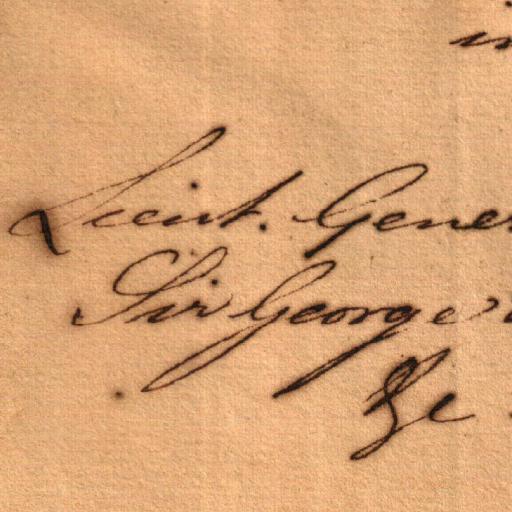 Lieut. Gener
Sir George
&c